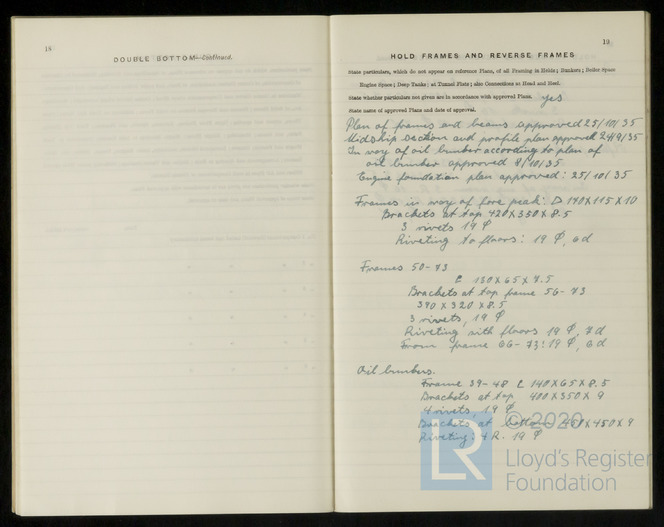 18
DOUBLE BOTTOM—Continued.
19
HOLD FRAMES AND REVERSE FRAMES
State particulars, which do not appear on reference Plans, of all Framing in Holds; Bunkers; Boiler Space
Engine Space; Deep Tanks; at Tunnel Flats; also Connections at Head and Heel.
State whether particulars not given are in accordance with approved Plans. yes
State name of approved Plans and date of approval.
Plan of frames and beams approved 25/10/35
Midship section and profile plan approved 24/9/35
In way of oil bunker according to plan of
oil bunker approved 8/10/35
Engine foundation plan approved: 25/10/35
Frames in way of fore peak: 140X115X10
Brackets at top 420X350X8.5
3 rivets 19 Φ
Riveting to floors: 19 Φ, 6d
Frames 50-73
130X65X7.5
Brackets at top frame 56-73
390X320X8.5
3 rivets, 19 Φ
Riveting with floors 19 Φ, 7d
From frame 66-73: 19 Φ, 6d
Oil bunkers.
Frame 39-48 140X65X8.5
Brackets at top 400X350X9
4 rivets, 19 Φ
Brackets at bottom 450X450X9
Riveting: 4 R. 19 Φ
LR
© 2020
Lloyd's Register
Foundation